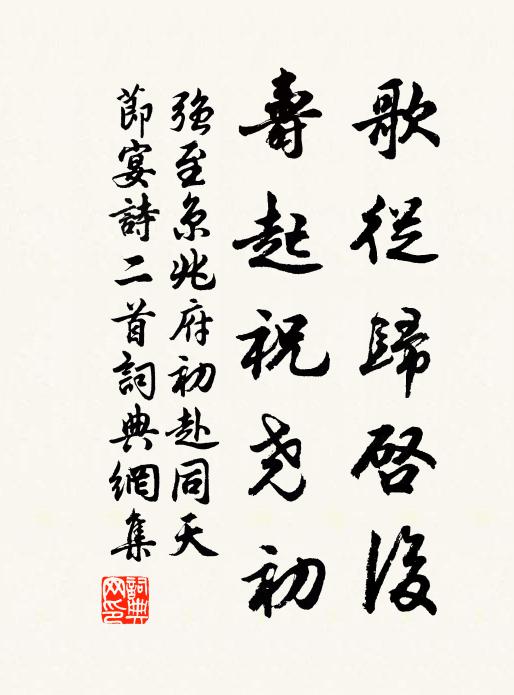 歌從歸啓後
壽起祝尧初
強至京兆府初赴同天
節宴詩二首詞典網集
詞典网印